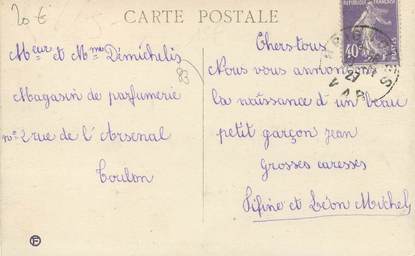 20 €
CARTE POSTALE
Meur et Mme Démichelis
Magasin de parfumerie
no 2 rue de l'Arsenal
Toulon
83
Chers tous
Nous vous annonçons
la naissance d'un beau
petit garçon Jean
Grosses caresses
Fifine et Léon Michel
REPUBLIQUE FRANÇAISE
40c
POSTES
VAR